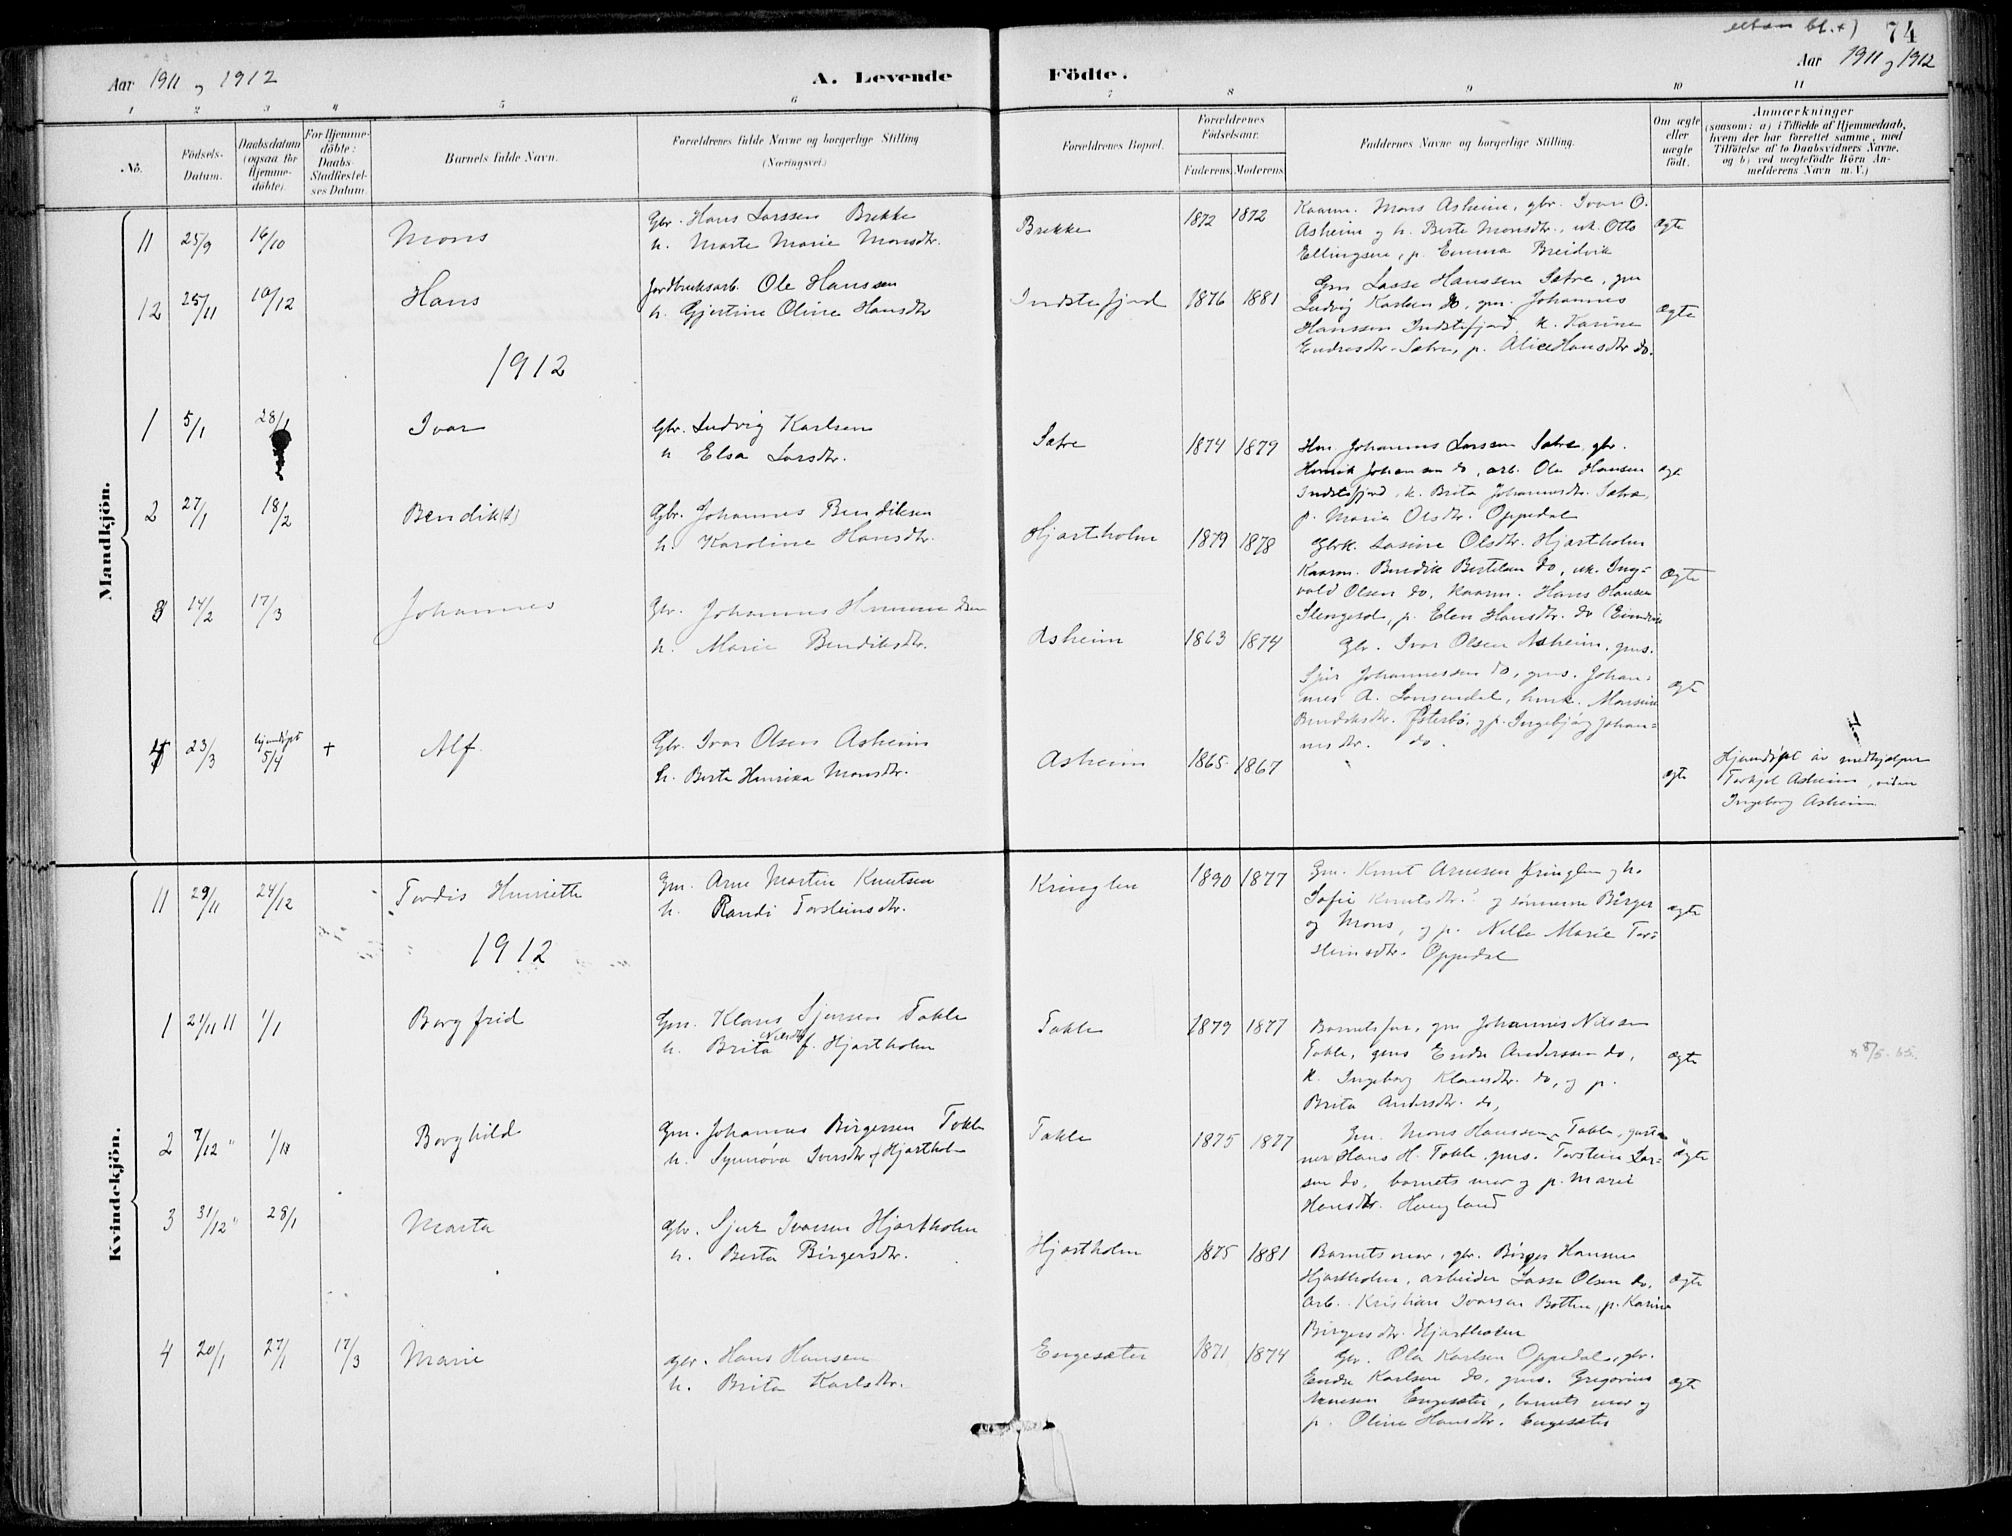 74
Aar 1911 og 1912
A. Levende Födte.
Aar 1911 og 1912
1 2 3 4 5 6 7 8 9 10 11
No.
Födsels-
Datum.
Daabsdatum
(ogsaa for
Hjemme-
döbte).
For Hjemme-
döbte:
Daabs-
Stadfæstel-
ses Datum
Barnets fulde Navn.
Forældrenes fulde Navne og borgerlige Stilling
(Næringsvei.)
Forældrenes Bopæl.
Forældrenes
Födselsaar.
Faderens Moderens
Faddernes Navne og borgerlige Stilling.
Om ægte
eller
uægte
födt.
Anmærkninger
(saasom: a) i Tilfælde af Hjemmedaab,
hvem der har forrettet samme, med
Tilföielse af to Daabsvidners Navne,
og b) ved uægtefödte Börn An-
melderens Navn m. V.)
Mandkjön.
11 25/9 16/10 Mons
Gbr. Hans Larssen Brekke
h. Marte Marie Monsdtr.
Brekke 1872 1872
Kaarm. Mons Asheim, gbr. Ivar O.
Asheim og h. Berte Monsdtr., uk. Otto
Ellingsen, p. Emma Breidvik
Ægte
12 25/11 10/12 Hans
Jordbruksarb. Ole Hanssen
h. Gjertine Oline Hansdtr
Indstefjord 1876 1881
Gm Lasse Hanssen Sætre, gm
Ludvig Karlsen do, gm. Johannes
Hanssen Indstefjord, k. Karine
Endresdtr. Sætre, p. Alice Hansdtr do.
Ægte
1912
1 5/1 28/1 Ivar
Gbr. Ludvig Karlsen
h Elsa Larsdtr.
Sætre 1874 1879
Hm Johannes Larssen Sætre, gbr.
Henrik Johansen do, arb. Ole Hansen
Indstefjord, k. Brita Johannesdtr. Sætre,
p. Maria Olsdtr. Oppedal
ægte
2 27/1 18/2 Bendik(t)
Gbr. Johannes Bendiksen
h. Karoline Hansdtr.
Hjartholm 1879 1878
Gbrk. Lasine Olsdtr. Hjartholm
Kaarm. Bendik Bertelsen do, uk. Ing-
vald Olsen do, Kaarm. Hans Hansen
Slengesol, p. Elen Hansdtr. do
Ægte
3 14/2 17/3 Johannes
Gbr. Johannes
h. Marie Bendiksdtr.
Asheim 1863 1874
Gbr. Ivar Olsen Asheim, gms.
Sjur Johannessen do, gms. Johan-
nes A. hmk. Monsine
Bendiksdtr. Østerbø, og p. Ingebjørg Johan-
nesdtr. do.
ægte
4 23/3 hjemdøpt 5/4 + Alf.
Gbr. Ivar Olsen Asheim
h. Berte Henrika Monsdtr.
Asheim 1865 1867
ægte
Hjemdøpt av medhjelper
Torkjel Asheim, viden
Ingeborg Asheim
Kvindekjön.
11 29/11 24/12 Tordis Henriette
Gm. Arne Martin Knutsen
h. Randi Torsteinsdtr.
Kringlen 1890 1877
Gm. Knut Arnesen Kringlen og h.
Sofie Knutsdtr. og sønnerne Birger
og Mons, og p. Nille Marie Tor-
steinsdtr. Oppedal
ægte
1912
1 21/11 11 1/1 Borgfrid
Gm. Klaus Sjursen Takle
h. Brita Nilsdtr f. Hjartholm
Takle 1879 1877
Barnets far, gm Johannes Nilssen
Takle, gms Endre Anderssen do,
k. Ingeborg Klausdtr. do, og p.
Brita Andersdtr. do,
ægte
2 7/12 " Borghild
Gm. Johannes Birgersen Takle
h. Synnøva Iversdtr f Hjartholm
Takle 1875 1877
Gm. Mons Hanssen Takle,
Hans H. Takle, gms. Torstein Lar-
sen do, barnets mor og p. Marie
Hansdtr. Haugland
ægte
3 31/12 " 28/1 Marta
Gbr. Sjur Ivarsen Hjartholm
h. Berta Birgersdtr.
Hjartholm 1875 1881
Barnets mor, gbr. Birger Hansen
Hjartholm, arbeider Lasse Olsen do,
arb. Kristian Ivarsen Botten, p. Karina
Birgersdtr. Hjartholm
ægte
4 20/1 27/1 17/3 Marie
gbr. Hans Hansen
h. Brita Karlsdtr.
Engesæter 1871 1874
Gbr. Ola Karlsen Oppedal, gbr.
Endre Karlsen do, gms. Gregorius
Arnesen Engesæter, barnets mor og
p. Oline Hansdtr. Engesæter
ægte